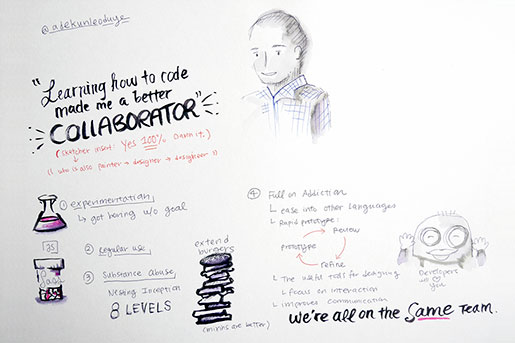 @adekunleoduye
"Learning how to code
made me a better
COLLABORATOR"
(sketcher insert: Yes 100% Damn it.)
(( who is also painter → designer → desigineer ))
① experimentation
↳ got boring w/o goal
JS
② Regular use
Sass
③ Substance abuse
Nesting Inception
8 LEVELS
extend
burgers
(minins are better)
④ Full on Addiction
↳ ease into other languages
↳ Rapid prototype:
Review
prototype
refine
↳ The useful tools for designing
↳ focus on interaction
↳ improves communication
Developers
will ♡
you
We're all on the Same Team.